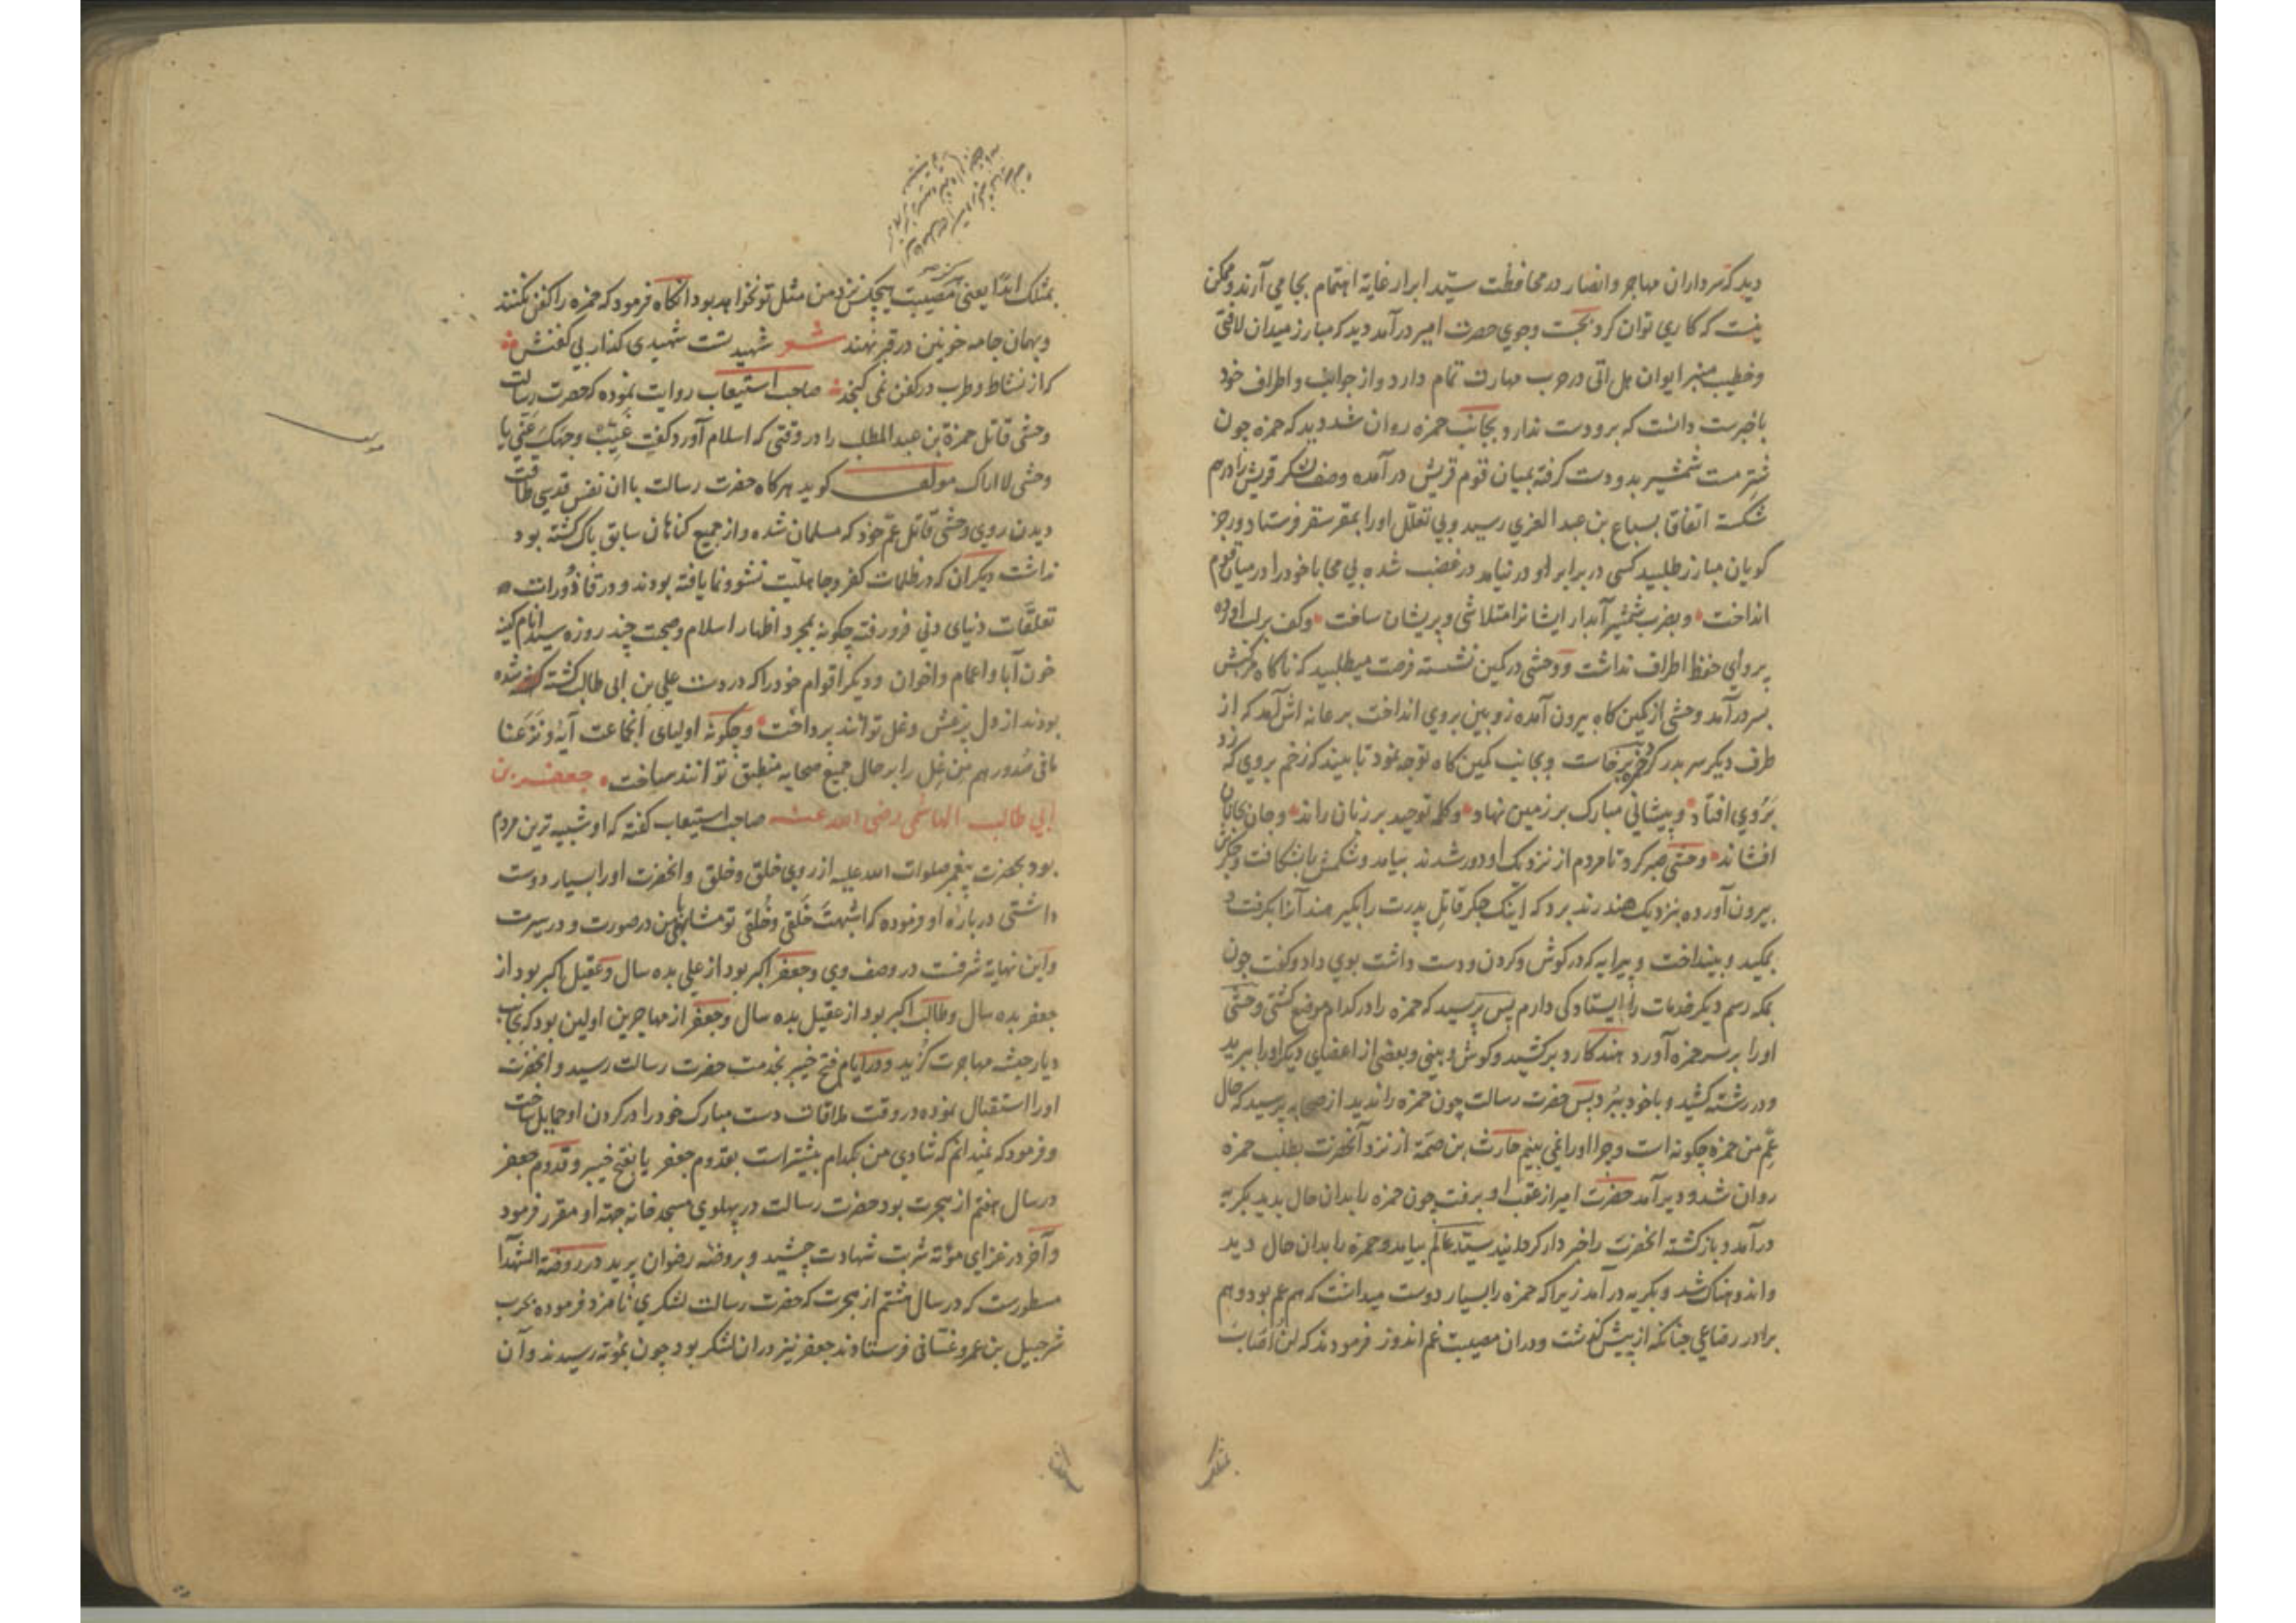 دید که سرداران مهاجر و انصار در محافظت سیّد ابرار غایة اهتمام بجا می آرند و ممکن
نیست که کاری توان کرد بجست و جوی حضرت امیر درآمد دید که مبارز میدان لافتی
و خطیب منبر ایوان هل اتی در حرب مهارت تمام دارد و از جوانب و اطراف خود
باخبرست دانست که برو دست ندارد بجانب حمزه روان شد دید که حمزه چون
شتر مست شمشیر بدو دست گرفته بمیان قوم قریش درآمده و صف لشکر قریش را درهم
شکسته اتفاقا بسباع بن عبد العزی رسید و بی تعلّل او را بمقر سقر فرستاد و رجز
کویان مبارز طلبید کسی در برابر او در نیامد در غضب شده بی محابا خود را در میان قوم
انداخت و بضرب شمشیر آبدار ایشانرا متلاشی و پریشان ساخت و کف بر لب آورده
پروای حفظ اطراف نداشت و وحشی در کمین نشسته فرصت میطلبید که ناکاه مرکبش
بسر درآمد وحشی از کمین کاه بیرون آمده زوبین بروی انداخت بر عانه اش آمد که از
طرف دیکر سر بدر کرد حمزه برخاست و بجانب کمین کاه توجه نمود تا بیند که زخم بروی که زد
بروی افتاد و پیشانی مبارک بر زمین نهاد و کلمه توحید بر زبان راند و جان بجانان
افشاند وحشی صبر کرد تا مردم از نزدیک او دور شدند بیامد و شکمش بشکافت و جکرش
بیرون آورده بنزدیک هند زند برد که اینک جکر قاتل پدرت را بکیر هند آنرا بکرفت و
بمکید و بینداخت و پیرایه که در کوش و کردن و دست داشت بوی داد و کفت چون
بمکه رسم دیکر خدمات را ایستادکی دارم پس پرسید که حمزه را در کدام موضع کشتی وحشی
او را بر سر حمزه آورد هند کارد برکشید و کوش و بینی و بعضی از اعضای دیکر او را ببرید
و در رشته کشید و با خود ببرد پس حضرت رسالت چون حمزه را ندید از صحابه پرسید که حال
عمّ من حمزه چکونه است و چرا او را نمی بینم حارث بن صمّة از نزد آنحضرت بطلب حمزه
روان شد و دیر آمد حضرت امیر از عقب او برفت چون حمزه را بدان حال بدید بکریه
درآمد و بازکشته آنحضرت را خبردار کردانید سیّد عالم بیامد و حمزه را بدان حال دید
و اندوهناک شد و بکریه درآمد زیرا که حمزه را بسیار دوست میداشت که هم عم بود و هم
برادر رضاعی چنانکه از پیش کذشت و در ان مصیبت غم اندوز فرمودند که لن اصاب
بمثلک ابدا یعنی مصیبت هیچکس نزد من مثل تو نخواهد بود انکاه فرمود که حمزه را کفن نکنند
و بهمان جامه خونین در قبر نهند شعر شهید تست شهیدی کذار بی کفنش
که از نشاط و طرب در کفن نمی کنجد صاحب استیعاب روایت نموده که حضرت رسالت
وحشی قاتل حمزة بن عبد المطلب را در وقتی که اسلام آورد کفت غیّب وجهک عنّی یا
وحشی لا اراک مولف کوید هرکاه حضرت رسالت با ان نفس قدسی طاقت
دیدن روی وحشی قاتل عمّ خود که مسلمان شده و از جمیع کناهان سابق پاک کشته بود
نداشت دیکران که در ظلمات کفر و جاهلیّت نشو و نما یافته بودند و در قاذورات
تعلقات دنیای دنی فرو رفته چکونه بمجرد اظهار اسلام و صحبت چند روزه سید انام کینه
خون آبا و اعمام و اخوان و دیکر اقوام خود را که در دست علی بن ابی طالب کشته شده
بودند از دل پرغش و غل توانند پرداخت و چکونه اولیای انجماعت آیهٔ و نزعنا
ما فی صدورهم من غلّ را بر حال جمیع صحابه منطبق توانند ساخت جعفر بن
ابی طالب الهاشمی رضی الله عنه صاحب استیعاب کفته که او شبیه ترین مردم
بود بحضرت پیغمبر صلوات الله علیه از روی خلق و خلق و انحضرت او را بسیار دوست
داشتی در بارهٔ او فرموده که اشبهت خَلقی و خُلقی تو مشابهی بمن در صورت و در سیرت
و این نهایة شرفست در وصف وی و جعفر اکبر بود از علی بده سال و عقیل اکبر بود از
جعفر بده سال و طالب اکبر بود از عقیل بده سال و جعفر از مهاجرین اولین بود که بجانب
دیار حبشه مهاجرت کزید و در ایام فتح خیبر بخدمت حضرت رسالت رسید و انحضرت
او را استقبال نموده در وقت ملاقات دست مبارک خود را در کردن او حمایل ساخت
و فرمود که نمیدانم که شادی من بکدام بیشتر است بقدوم جعفر یا بفتح خیبر و قدوم جعفر
در سال هفتم از هجرت بود حضرت رسالت در پهلوی مسجد خانه جهة او مقرر فرمود
و آخر در غزای مؤته شربت شهادت چشید و بروضه رضوان پرید در روضة الشهدا
مسطورست که در سال هشتم از هجرت که حضرت رسالت لشکری نامزد فرموده بحرب
شرحبیل بن عمرو غسّانی فرستادند جعفر نیز در ان لشکر بود چون بمؤته رسیدند و آن